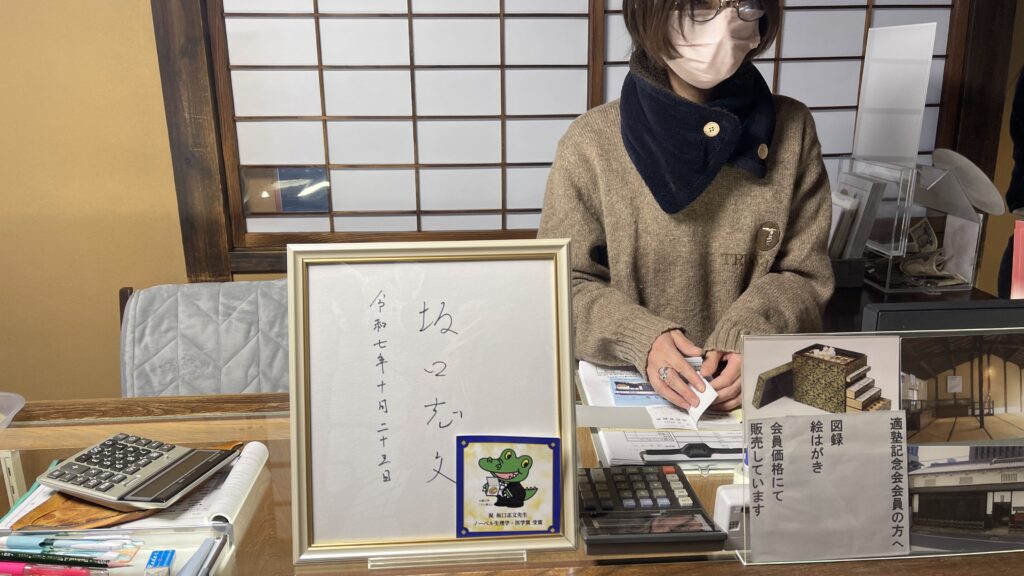 坂口志文
令和七年十月二十五日
祝 坂口志文先生
ノーベル生理学・医学賞 受賞
適塾記念会会員の方へ
図録
絵はがき
会員価格にて
販売しています